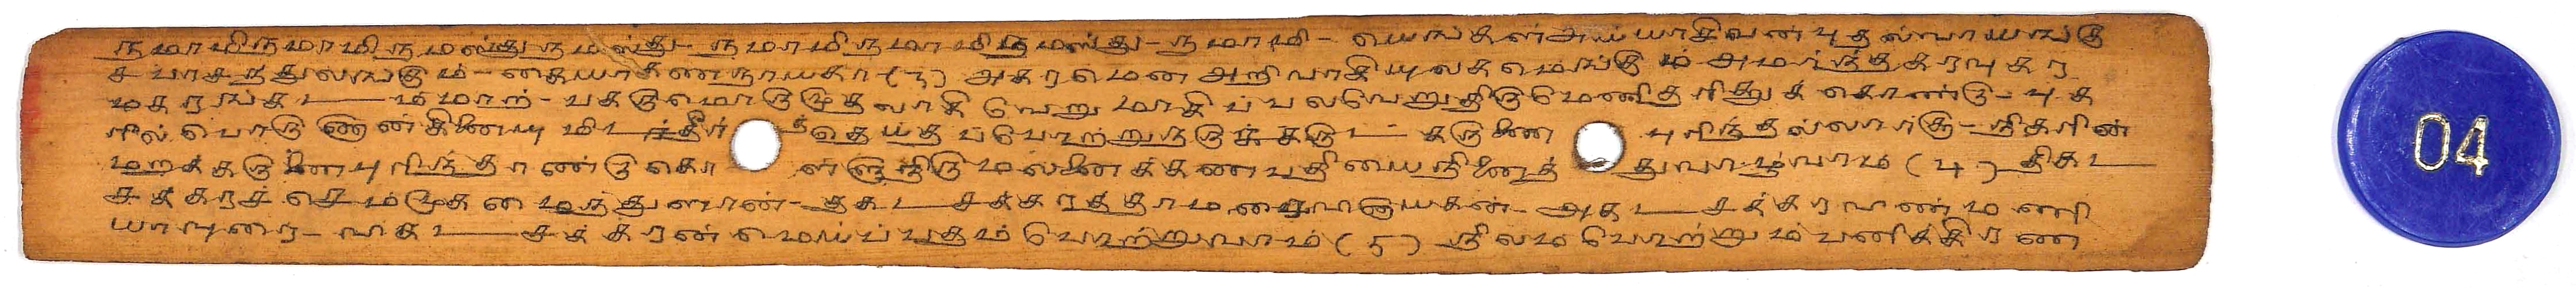 நமாமிநமாமிநமஸ்துநமஸ்து- நமாமிநமாமிநமஸ்து- நமாமி- யெங்கள்அய்யாசிவன்புதல்வாயங்கு
ச பாசந்துலங்கும்- கையாகணநாயகா (௩) அகரமென அறிவாகியுலகமெங்கும் அமர்ந்தகரவுகர
மகரங்க டம்மாற்- பகருமொருமுதலாகி வேறுமாகிப்பலவேறுதிருமேனிதரித்துக்கொண்டு- புக
ரில்பொருணான்கினையுமிடர்தீர்ந்தெய்தப்போற்றுநருக்கருட் கருணை புரிந்தல்லார்கு- நிகரின்
மறக்கருணைபுரிந்தாண்டுகொ ள்ளுநிருமலனைக்கணபதியைநினைத் துவாழ்வாம் (௪) திகட
சக்கரச்செம்முகமைந்துளான்- சகடசக்கரத்தாமரைநாயகன்- அகடசக்கரவிண்மணி
யாவுரை- விகடசக்கரன்மெய்ப்பதம்போற்றுவாம் (௫) நிலம போற்றும்பணிக்கிரண